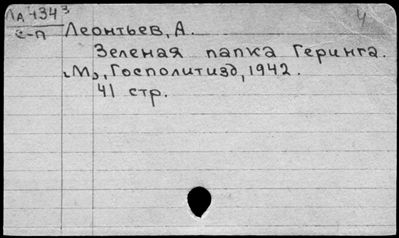 Ла 434³
с-п
Леонтьев, А.
Зеленая папка Геринга.
"М", Госполитизд, 1942.
41 стр.